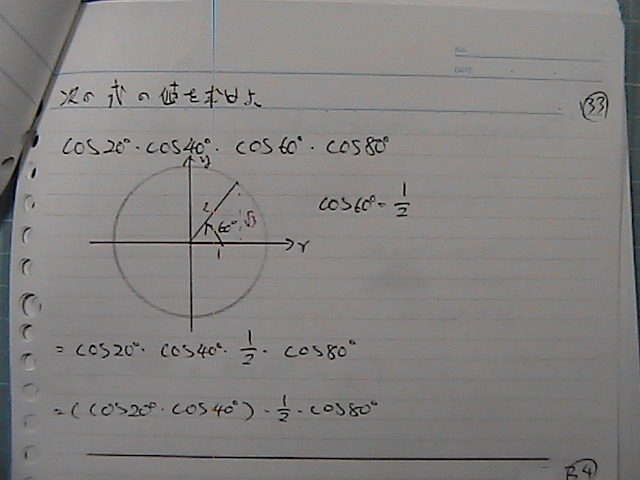 NO.
DATE
次の式の値を求めよ
33
cos20°・cos40°・cos60°・cos80°
y
cos60°=1/2
2
60°
√3
1
x
=cos20°・cos40°・1/2・cos80°
=(cos20°・cos40°)・1/2・cos80°